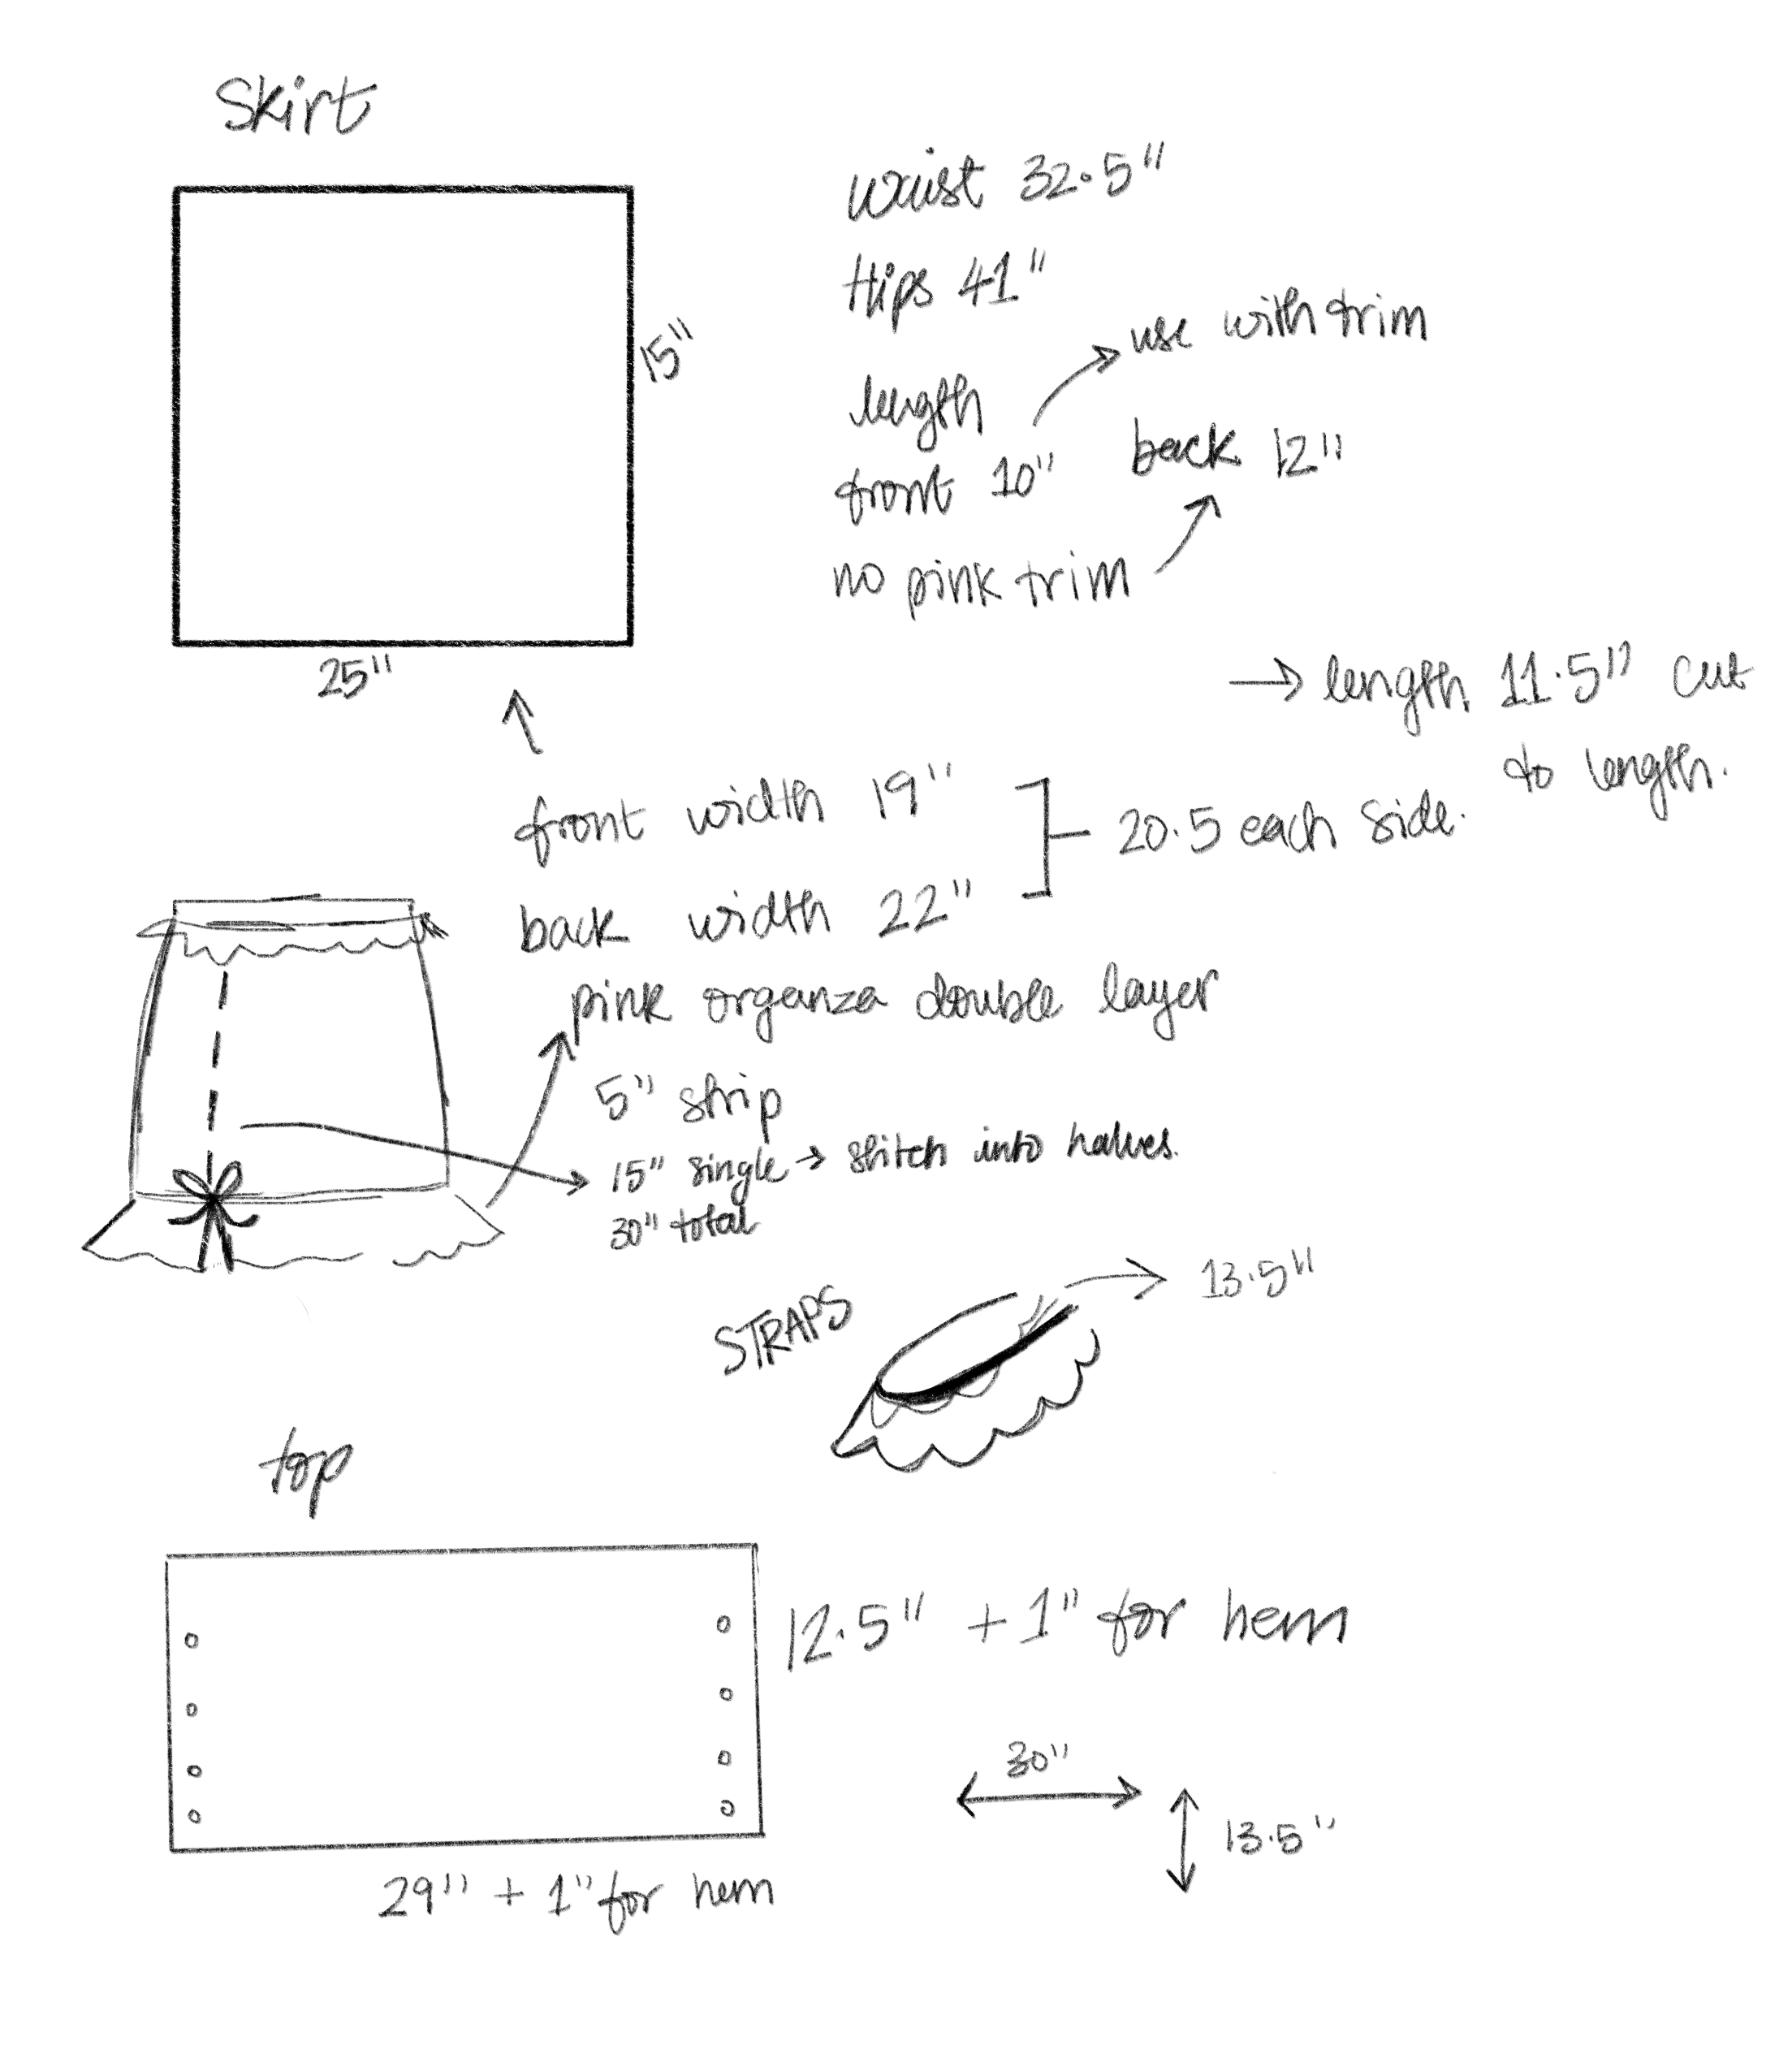 Skirt
15"
25"
waist 32.5"
Hips 41"
length
front 10"
use with trim
back 12"
no pink trim
→ length 11.5" cut
to length.
front width 19"
back width 22"
20.5 each side.
pink organza double layer
5" strip
15" single → stitch into halves.
30" total
STRAPS
13.5"
top
12.5" + 1" for hem
29" + 1" for hem
30"
13.5"